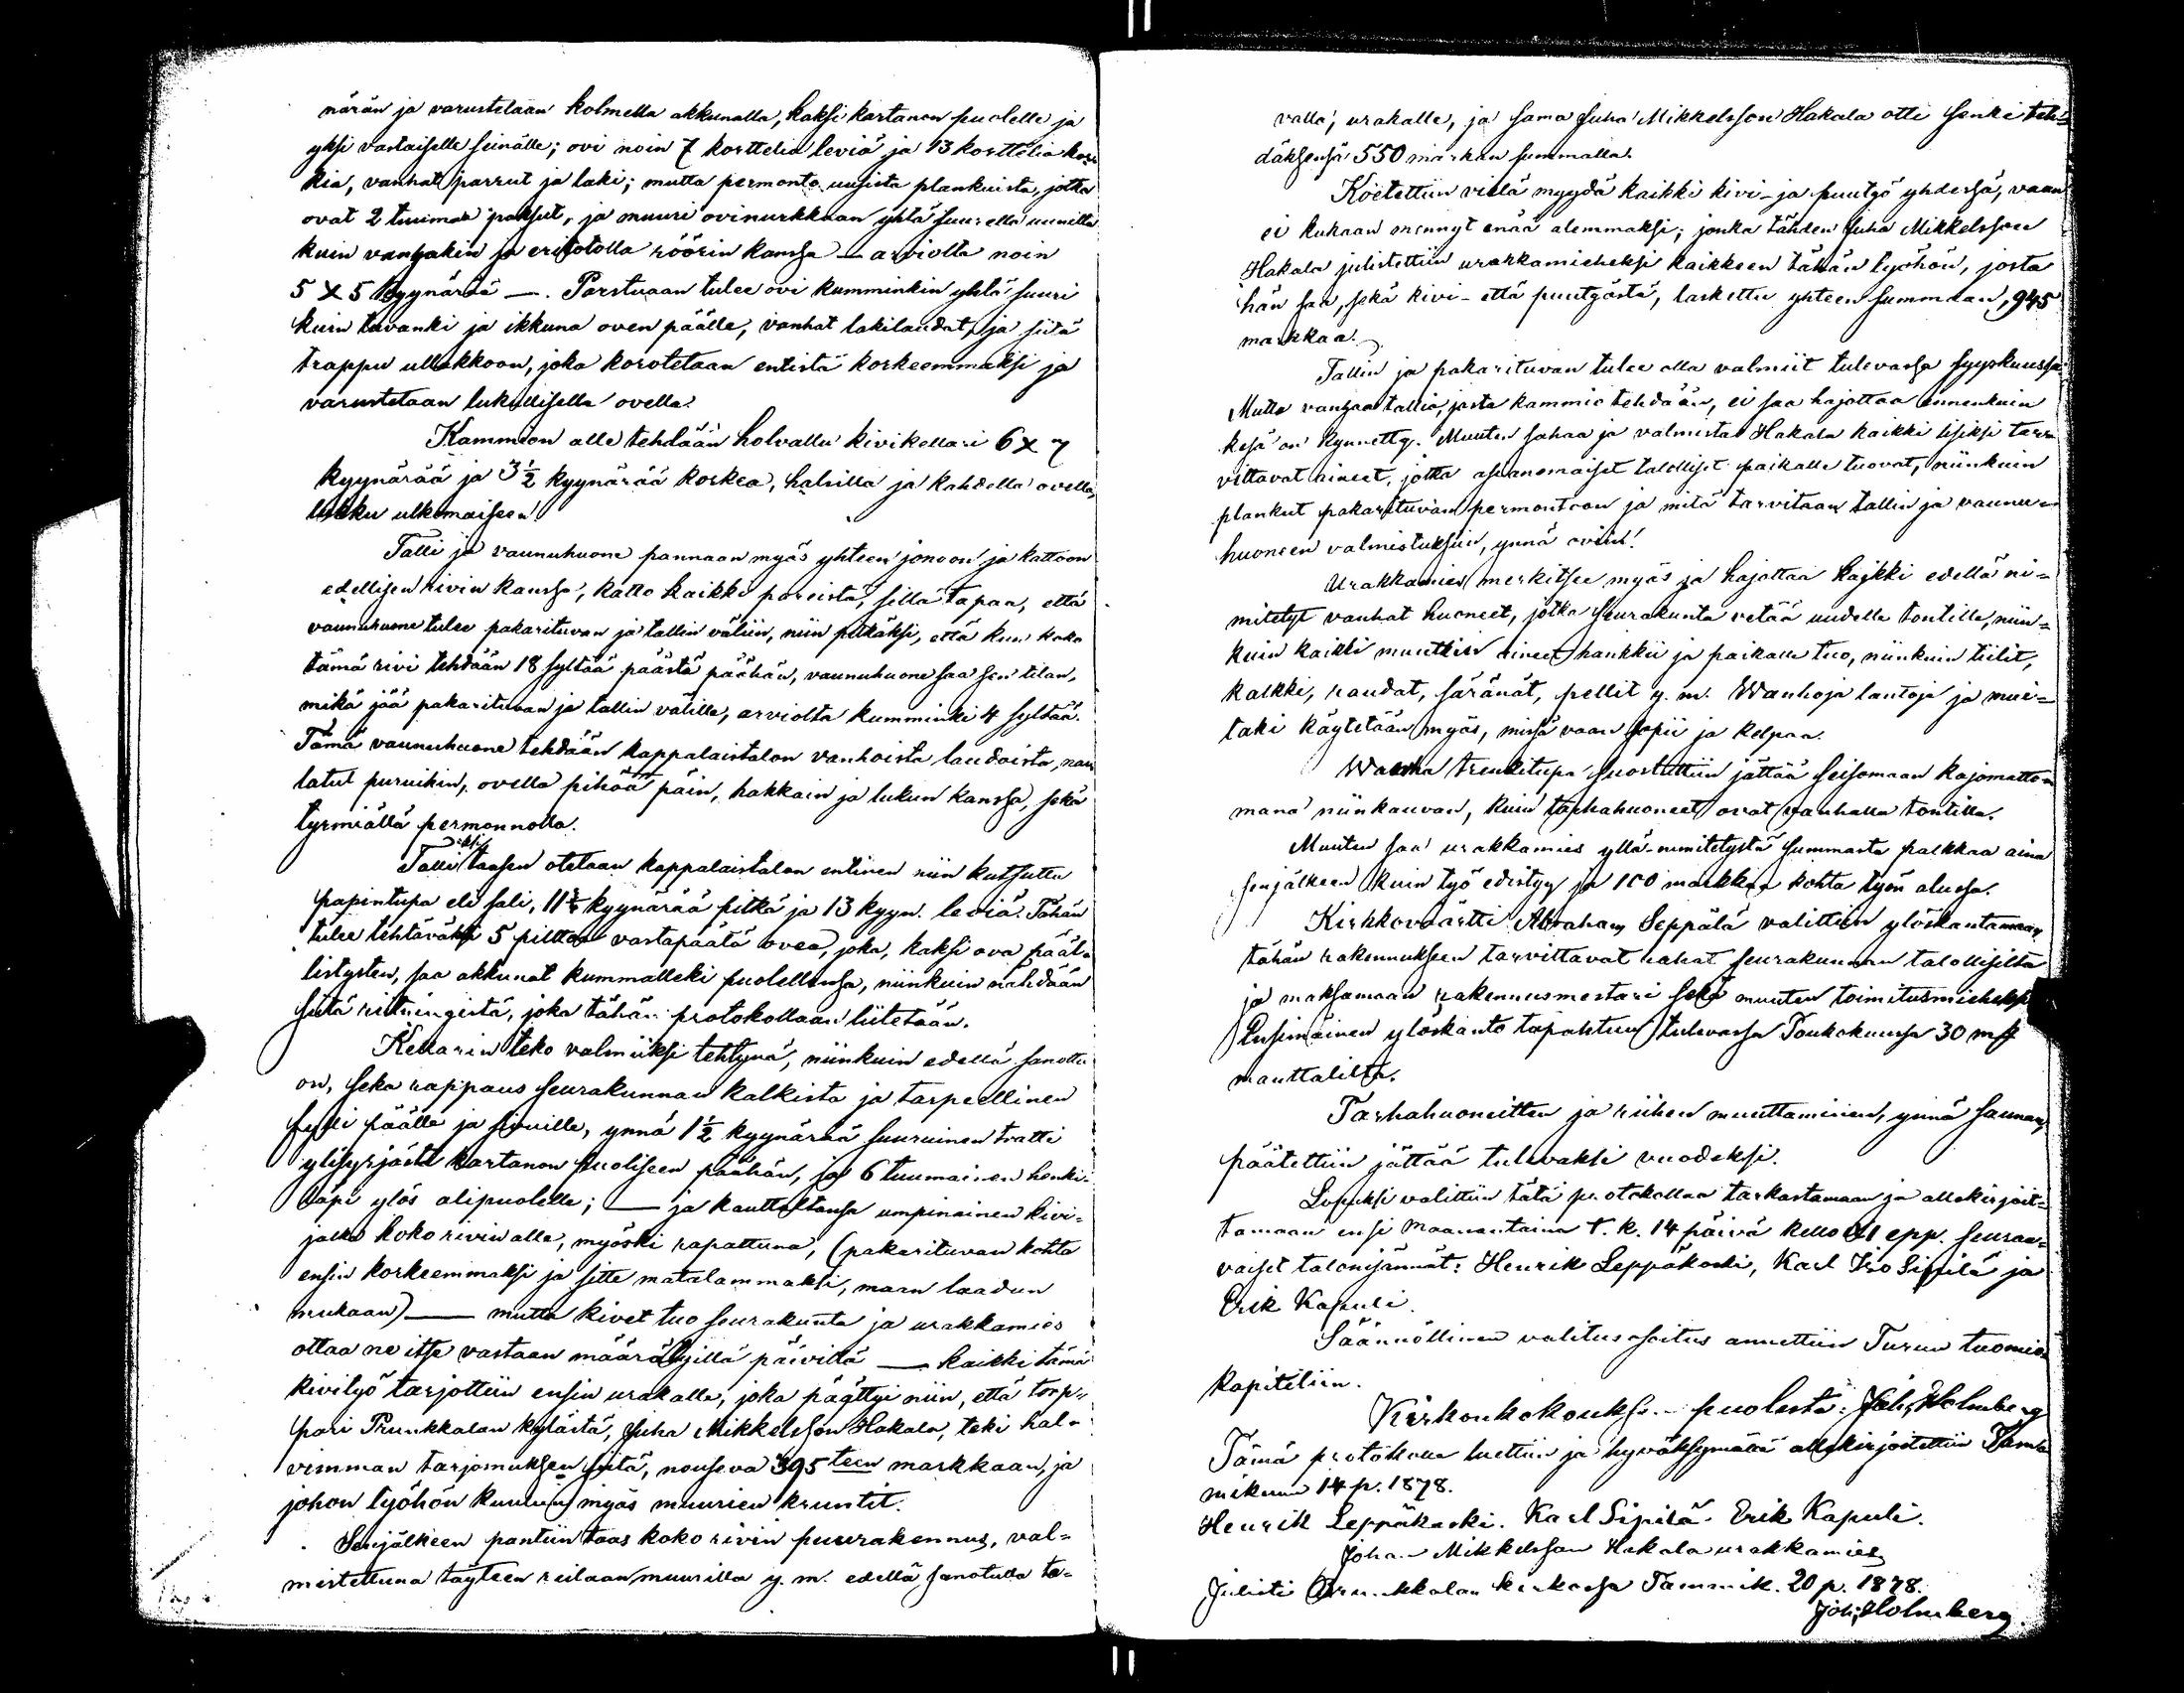 närän ja varustetaan kolmella akkunalla, kaksi kartanon puolelle ja
yksi vastaiselle seinälle; ovi noin 7 korttelia leviä ja 13 korttelia kor¬
kia, vanhat parrut ja laki; mutta permanto uusista plankuista, jotka
ovat 2 tuumaa paksut, ja muuri ovinurkkaan yhtä suurella uunilla
kuin vanhakin ja eri totolla röörin kanssa — arviolta noin
5 x 5 kyynärää —. Porstuaan tulee ovi kumminkin yhtä suuri
kuin tavanki ja ikkuna oven päälle, vanhat lakilaudat, ja siitä
trappu ullakkoon, joka korotetaan entistä korkeemmaksi ja
varustetaan lukullisella ovella.
Kammion alle tehdään holvattu kivikellari 6 x 7
kyynärää ja 3½ kyynärää korkea, halsilla ja kahdella ovella,
lukku ulkomaiseen.
Talli ja vaunuhuone pannaan myös yhteen jonoon ja kattoon
edellisen rivin kanssa, katto kaikki päreistä, sillä tapaa, että
vaunuhuone tulee pakarituvan ja tallin väliin, niin pitkäksi, että kun koko
tämä rivi tehdään 18 syltää päästä päähän, vaunuhuone saa sen tilan,
mikä jää pakarituvan ja tallin välille, arviolta kumminki 4 syltää.
Tämä vaunuhuone tehdään kappalaistalon vanhoista laudoista, nau
latut puruihin, ovella pihaa päin, hakkain ja lukun kanssa, sekä
tyrmiällä permannolla.
Talliksi taasen otetaan kappalaistalon entinen niin kutsuttu
papintupa eli sali, 11½ kyynärää pitkä ja 13 kyyn. leviä. Tähän
tulee tehtäväksi 5 pilttaa vastapäätä ovea, joka, kaksi ova pääl¬
listysten, saa akkunat kummalleki puolellensa, niinkuin nähdään
siitä ritningistä, joka tähän protokollaan liitetään.
Kellarin teko valmiiksi tehtynä, niinkuin edellä sanottu
on, seka rappaus seurakunnan kalkista ja tarpeellinen
fylli päälle ja sivuille, ynnä 1½ kyynärää suuruinen tratti
ylisyrjästä kartanon puoliseen päähän, ja 6 tuumainen henki¬
läpi ylös alipuolelle; — ja kauttaltansa umpinainen kivi-
jalka koko rivin alle, myöski rapattuna, (pakarituvan kohta
ensin korkeemmaksi ja sitte matalammaksi, maan laadun
mukaan) — mutta kivet tuo seurakunta ja urakkamies
ottaa ne itse vastaan määrätyillä päivillä — kaikki tämä
kivityö tarjottiin ensin urakalle, joka päättyi niin, että torp-
pari Prunkkalan kylästä, Juha Mikkelsson Hakala, teki hal¬
vimman tarjomuksen siitä, nouseva 395 teen markkaan, ja
johon työhön kuuluu myös muurien kruntit.
Senjälkeen pantiin taas koko rivin puurakennus, val-
mistettuna täyteen reilaan muurilla y. m. edellä sanotulla ta-
valla, urakalle, ja sama Juha Mikkelsson Hakala otti senki teh-
däksensä 550 markan summalla.
Koetettiin vielä myydä kaikki kivi- ja puutyö yhdessä, vaan
ei kukaan mennyt enää alemmaksi; jonka tähden Juha Mikkelsson
Hakala julistettiin urakkamieheksi kaikkeen tähän työhön, josta
hän saa, sekä kivi- että puutyöstä, laskettu yhteen summaan, 945
markkaa.
Tallin ja pakarituvan tulee olla valmiit tulevassa syyskuussa.
Mutta vanhaa tallia, josta kammio tehdään, ei saa hajottaa ennenkuin
kesä on kynnetty. Muuten sahaa ja valmistaa Hakala kaikki lisiksi tar¬
vittavat aineet, jotka asianomaiset talolliset paikalle tuovat, niinkuin
plankut pakarituvan permantoon ja mitä tarvitaan tallin ja vaunu-
huoneen valmistuksiin, ynnä oviin.
Urakkamies merkitsee myös ja hajottaa kaikki edellä ni-
mitetyt vanhat huoneet, jotka seurakunta vetää uudelle tontille, niin-
kuin kaikki muutkin aineet hankkii ja paikalle tuo, niinkuin tiilit,
kalkki, raudat, säränät, pellit y. m. Wanhoja lautoja ja mui-
taki käytetään myös, missä vaan sopii ja kelpaa.
Wanha trenkitupa suostuttiin jättää seisomaan kajomatto¬
mana niinkauvan, kuin tarhahuoneet ovat vanhalla tontilla.
Muuten saa urakkamies yllä-nimitetystä summasta palkkaa aina
senjälkeen kuin työ edistyy ja 100 markkaa kohta työn alussa.
Kirkkoväärtti Abraham Seppälä valittiin ylöskantamaan
tähän rakennukseen tarvittavat rahat seurakunnan talollisilta
ja maksamaan rakennusmestari sekä muuten toimitusmieheksi
Ensimäinen ylöskanto tapahtuu tulevassa Toukokuussa 30 mk
manttalilta.
Tarhahuoneitten ja riihen muuttaminen, ynnä saunan,
päätettiin jättää tulevaksi vuodeksi.
Lopuksi valittiin tätä protokollaa tarkastamaan ja allekirjoit-
tamaan ensi Maanantaina t. k. 14 päivä kello 11 epp. seuraa-
vaiset talonisännät: Henrik Leppäkoski, Karl Iso Sipilä ja
Erik Kapuli.
Säännöllinen valitusosoitus annettiin Turun tuomio
kapiteliin.
Kirkonkokouksen puolesta: Joh. Holmberg
Tämä protokolla luettiin ja hyväksymällä allekirjoitettiin Tam
mikuun 14 p. 1878.
Henrik Leppäkoski. Karl Sipilä. Erik Kapuli.
Johan Mikkelsson Hakala urakkamies
Julisti Prunkkalan kirkossa Tammik. 20 p. 1878.
Joh. Holmberg.